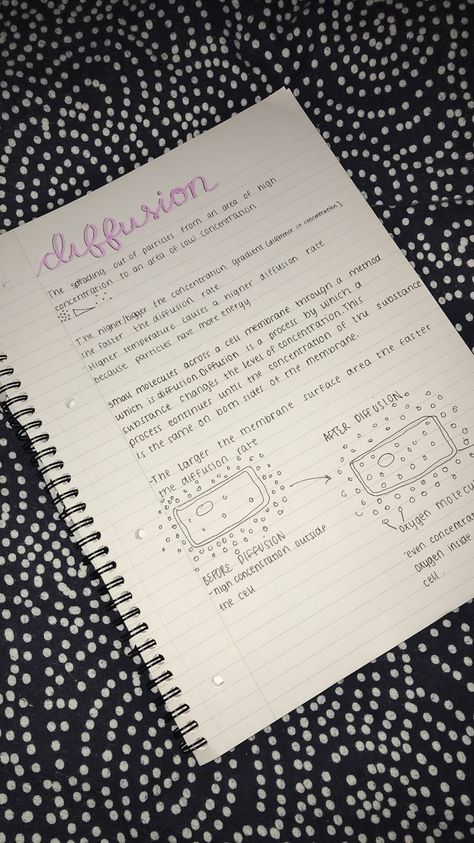 diffusion
The spreading out of particles from an area of high
concentration to an area of low concentration
The higher/bigger the concentration gradient (difference in concentration)
the faster the diffusion rate.
Higher temperature causes a higher diffusion rate
because particles have more energy
small molecules across a cell membrane through a method
which is diffusion. Diffusion is a process by which a
substance changes the level of concentration. This
process continues until the concentration of the substance
is the same on both sides of the membrane.
-The larger the membrane surface area the faster
the diffusion rate
AFTER DIFFUSION
BEFORE DIFFUSION
-high concentration outside
the cell
oxygen molecu
-even concentrat
oxygen inside
cell.